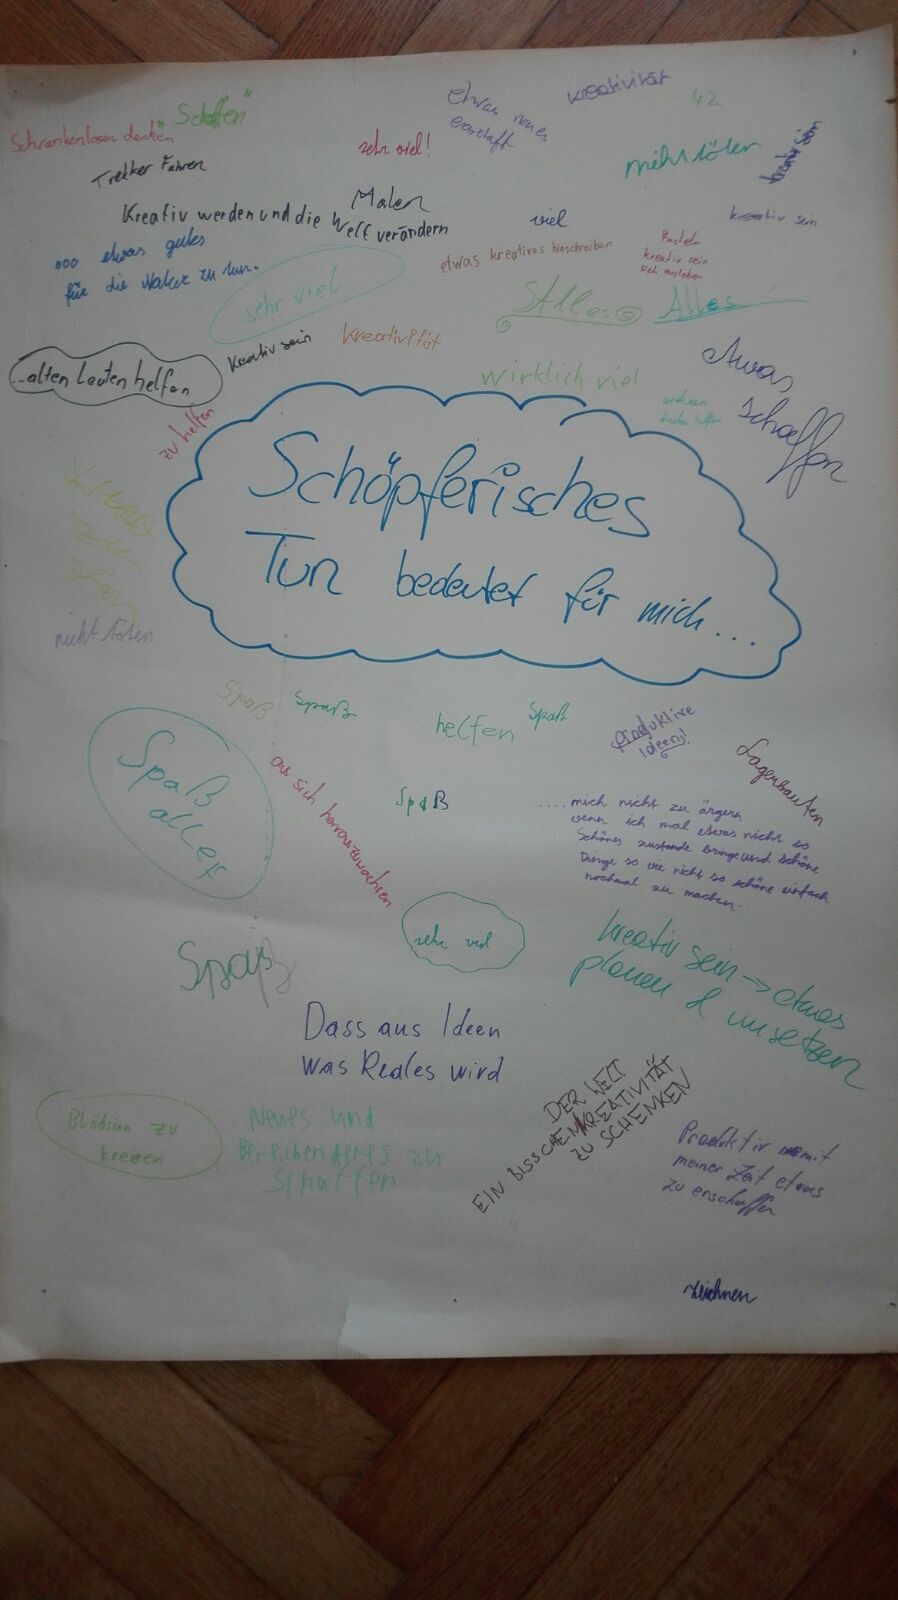 "Schaffen"
etwas neues
erschafft
Kreativität
42
Schrankenloses denken
sehr viel!
nicht töten
Trecker Fahren
Malen
Kreativ werden und die Welt verändern
viel
kreativ sein
ooo etwas gutes
für die Natur zu tun.
etwas kreatives hinschreiben
Basteln
kreativ sein
sich ausleben
sehr viel
Alles
Alles
...alten Leuten helfen
Kreativ sein
wirklich viel
etwas
schaffen
zu helfen
anderen
helfen
Schöpferisches
Tun bedeutet für mich...
zu
sein
nicht töten
Spaß
Spaß
helfen
Spaß
Produktive
Ideen!
Lagerbauten
Spaß
alles
aus sich herauszuwachsen
Spaß
....mich nicht zu ärgern
wenn ich mal etwas nicht so
Schönes zustande bringe und schöne
Dinge so wie nicht so schöne einfach
nochmal zu machen.
sehr viel
Spaß
kreativ sein → etwas
planen & umsetzen
Dass aus Ideen
was Reales wird
DER WELT
EIN BISSCHEN KREATIVITÄT
ZU SCHENKEN
Blödsinn zu
Neues und
Bereichenderes zu
schaffen
Produktiv mit
meiner Zeit etwas
zu erschaffen
zeichnen